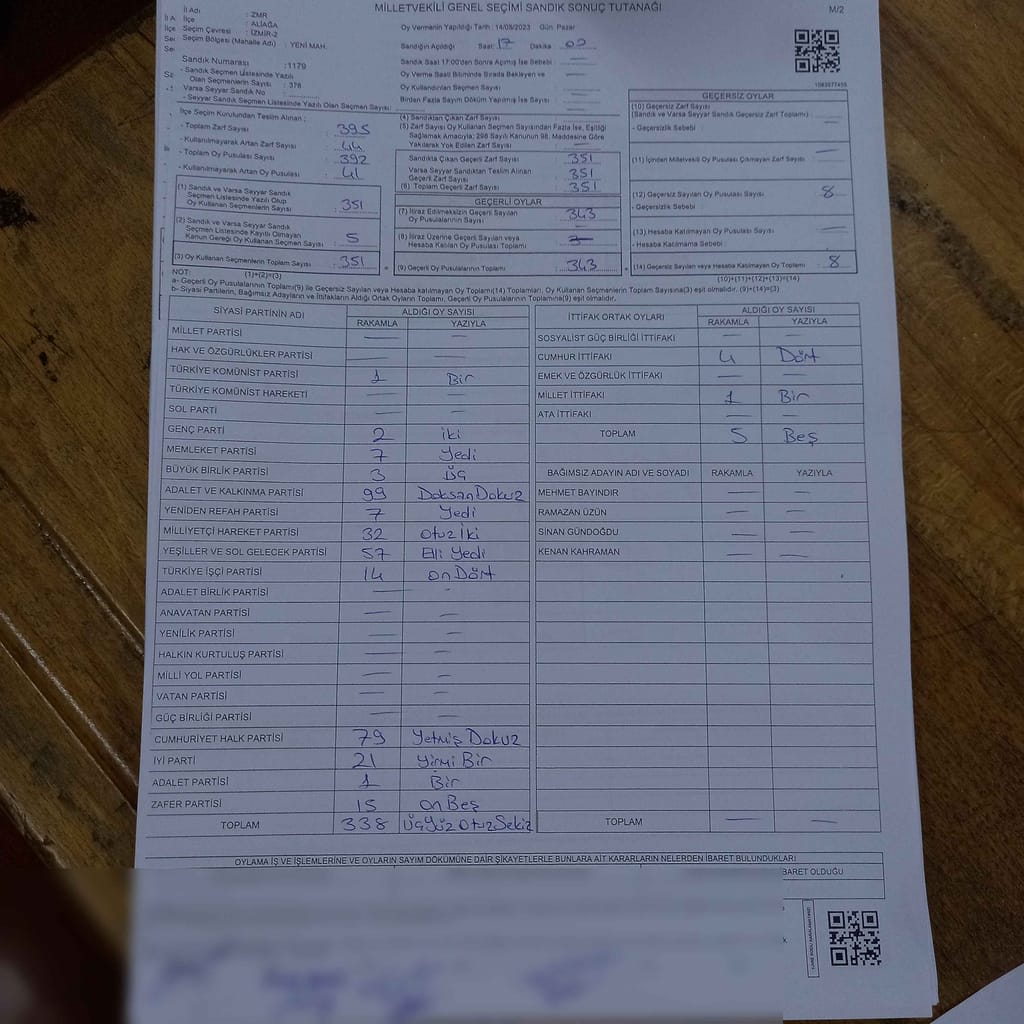 MİLLETVEKİLİ GENEL SEÇİMİ SANDIK SONUÇ TUTANAĞI
M/2
İl Adı : ZMR
İlçe : ALİAĞA
Seçim Çevresi : İZMİR-2
Seçim Bölgesi (Mahalle Adı) : YENİ MAH.
Sandık Numarası :1179
- Sandık Seçmen Listesinde Yazılı Olan Seçmenlerin Sayısı : 378
Varsa Seyyar Sandık No :
- Seyyar Sandık Seçmen Listesinde Yazılı Olan Seçmen Sayısı:
Oy Vermenin Yapıldığı Tarih : 14/05/2023 Gün: Pazar
Sandığın Açıldığı Saat: 17 Dakika 00
Sandık Saat 17:00'den Sonra Açılmış İse Sebebi : —
Oy Verme Saati Bitiminde Sırada Bekleyen ve
Oy Kullandırılan Seçmen Sayısı : —
Birden Fazla Sayım Döküm Yapılmış İse Sayısı : —
İlçe Seçim Kurulundan Teslim Alınan ;
- Toplam Zarf Sayısı : 395
- Kullanılmayarak Artan Zarf Sayısı : 44
- Toplam Oy Pusulası Sayısı : 392
- Kullanılmayarak Artan Oy Pusulası : 41
(1) Sandık ve Varsa Seyyar Sandık
Seçmen Listesinde Yazılı Olup
Oy Kullanan Seçmenlerin Sayısı : 351
(2) Sandık ve Varsa Seyyar Sandık
Seçmen Listesinde Kayıtlı Olmayan
Kanun Gereği Oy Kullanan Seçmen Sayısı : 5
(3) Oy Kullanan Seçmenlerin Toplam Sayısı : 351
(4) Sandıktan Çıkan Zarf Sayısı
(5) Zarf Sayısı Oy Kullanan Seçmen Sayısından Fazla İse, Eşitliği
Sağlamak Amacıyla; 298 Sayılı Kanunun 98. Maddesine Göre
Yakılarak Yok Edilen Zarf Sayısı : —
Sandıkta Çıkan Geçerli Zarf Sayısı : 351
Varsa Seyyar Sandıktan Teslim Alınan
Geçerli Zarf Sayısı : 351
(6) Toplam Geçerli Zarf Sayısı : 351
GEÇERLİ OYLAR
(7) İtiraz Edilmeksizin Geçerli Sayılan
Oy Pusulalarının Sayısı : 343
(8) İtiraz Üzerine Geçerli Sayılan veya
Hesaba Katılan Oy Pusulası Toplamı :
(9) Geçerli Oy Pusulalarının Toplamı : 343
GEÇERSİZ OYLAR
(10) Geçersiz Zarf Sayısı
(Sandık ve Varsa Sandık Geçersiz Zarf Toplamı) : —
- Geçersizlik Sebebi :
(11) İçinden Milletvekili Oy Pusulası Çıkmayan Zarf Sayısı : —
(12) Geçersiz Sayılan Oy Pusulası Sayısı : 8
- Geçersizlik Sebebi :
(13) Hesaba Katılmayan Oy Pusulası Sayısı : —
- Hesaba Katılmama Sebebi :
(14) Geçersiz Sayılan veya Hesaba Katılmayan Oy Toplamı : 8
NOT: (1)+(2)=(3) (10)+(11)+(12)+(13)=(14)
a- Geçerli Oy Pusulalarının Toplamı(9) ile Geçersiz Sayılan veya Hesaba katılmayan Oy Toplamı(14) Toplamları, Oy Kullanan Seçmenlerin Toplam Sayısına(3) eşit olmalıdır. (9)+(14)=(3)
b- Siyasi Partilerin, Bağımsız Adayların ve İttifakların Aldığı Ortak Oyların Toplamı, Geçerli Oy Pusulalarının Toplamına(9) eşit olmalıdır.
SİYASİ PARTİNİN ADI ALDIĞI OY SAYISI
RAKAMLA YAZIYLA
MİLLET PARTİSİ — —
HAK VE ÖZGÜRLÜKLER PARTİSİ — —
TÜRKİYE KOMÜNİST PARTİSİ 1 Bir
TÜRKİYE KOMÜNİST HAREKETİ — —
SOL PARTİ — —
GENÇ PARTİ 2 iki
MEMLEKET PARTİSİ 7 Yedi
BÜYÜK BİRLİK PARTİSİ 3 Üç
ADALET VE KALKINMA PARTİSİ 99 Doksan Dokuz
YENİDEN REFAH PARTİSİ 7 Yedi
MİLLİYETÇİ HAREKET PARTİSİ 32 otuz İki
YEŞİLLER VE SOL GELECEK PARTİSİ 57 Elli Yedi
TÜRKİYE İŞÇİ PARTİSİ 14 on Dört
ADALET BİRLİK PARTİSİ — —
ANAVATAN PARTİSİ — —
YENİLİK PARTİSİ — —
HALKIN KURTULUŞ PARTİSİ — —
MİLLİ YOL PARTİSİ — —
VATAN PARTİSİ — —
GÜÇ BİRLİĞİ PARTİSİ — —
CUMHURİYET HALK PARTİSİ 79 Yetmiş Dokuz
İYİ PARTİ 21 Yirmi Bir
ADALET PARTİSİ 1 Bir
ZAFER PARTİSİ 15 on Beş
TOPLAM 338 Üç Yüz Otuz Sekiz
İTTİFAK ORTAK OYLARI ALDIĞI OY SAYISI
RAKAMLA YAZIYLA
SOSYALİST GÜÇ BİRLİĞİ İTTİFAKI — —
CUMHUR İTTİFAKI 4 Dört
EMEK VE ÖZGÜRLÜK İTTİFAKI — —
MİLLET İTTİFAKI 1 Bir
ATA İTTİFAKI — —
TOPLAM 5 Beş
BAĞIMSIZ ADAYIN ADI VE SOYADI RAKAMLA YAZIYLA
MEHMET BAYINDIR — —
RAMAZAN ÜZÜN — —
SİNAN GÜNDOĞDU — —
KENAN KAHRAMAN — —
TOPLAM — —
OYLAMA İŞ VE İŞLEMLERİNE VE OYLARIN SAYIM DÖKÜMÜNE DAİR ŞİKAYETLERLE BUNLARA AİT KARARLARIN NELERDEN İBARET BULUNDUKLARI
BARET OLDUĞU